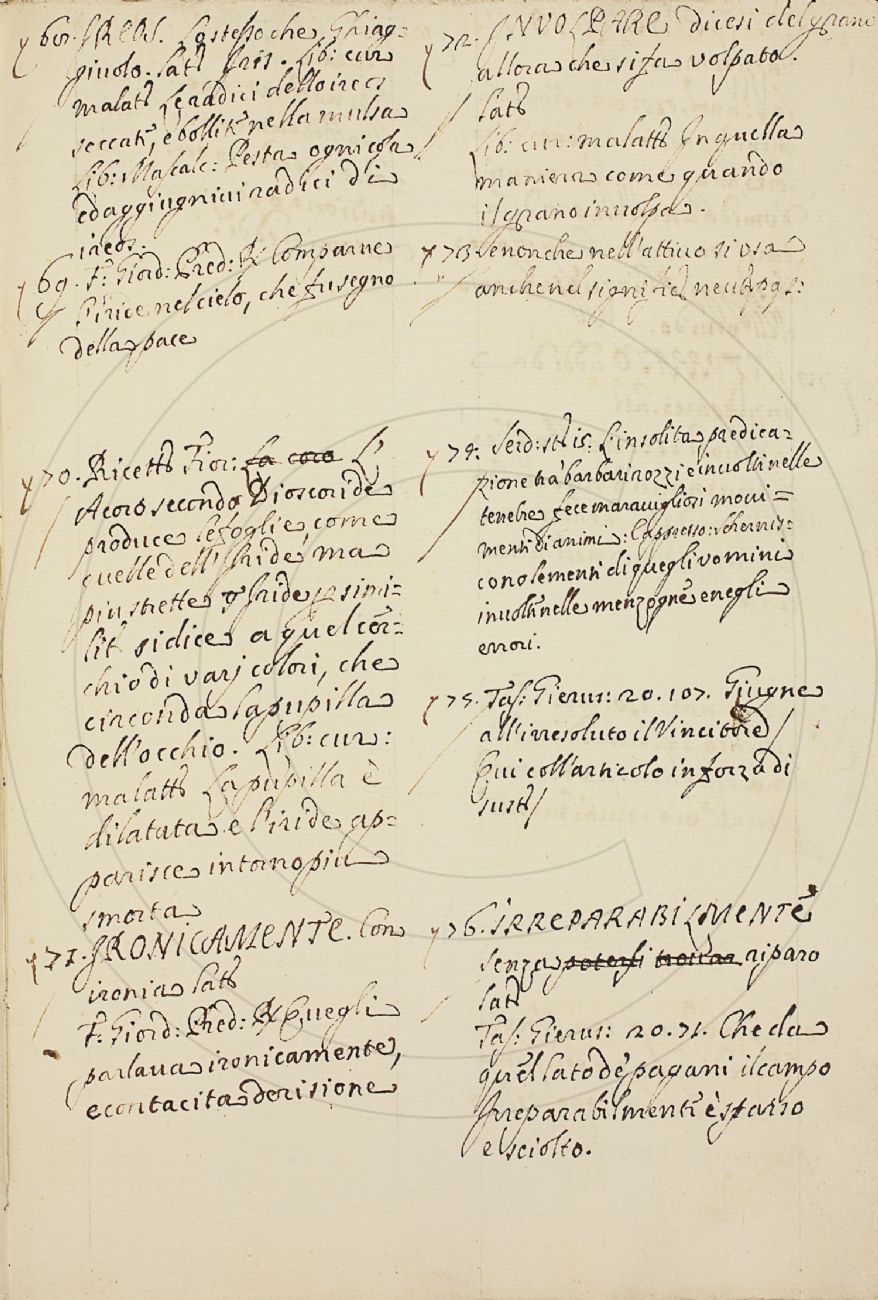 68. IREOS. Lo stesso che Ghiag=
giuolo. Latt. Iris. Lib: cur
malatt. Le radici dello ireos
seccate, e bollite nella mulsa
Lib: Mascalc: Pesta ogni cosa
ed aggiugnivi radici di
ireos.
69. F. Giord: Pred: R. Comparve
l'iride nel cielo, che fu segno
della pace
70. Ricett. Fior: La coro L'
Acoro secondo Dioscoride
produce le foglie come
quelle dell'Iride, ma
piu strette Iride simi=
lit. si dice a quel cer=
chio di varj colori, che
circonda la pupilla
dell'occhio. Lib: cur:
malatt. La pupilla è
dilatata e l'iride ap=
parisce intorno piu
smorta
71. IRONICAMENTE. Con
ironia Latt.
F. Giord: Pred: R. Quegli
parlava ironicamente,
e con tacita derisione
72. INVOLPARE dicesi del grano
allora che si fa volpato.
Latt.
Lib: cur: malatt. In quella
maniera come quando
il grano involpa.
73. Senonche nell'attivo si usa
anche nel signific. neutr. pas:
74. Serd: st. 15. L'insolita predica=
zione tra barbari rozzi e involti nelle
tenebre fece maravigliosi movi=
menti di animi: E appresso: schernis=
cono le menti di quegli uomini
involti nelle menzogne e negli
errori.
75. Tass. Gierus: 20. 107. Giugne
all'irresoluto il Vincitore /
Qui coll'articolo in forza di
sust. /
76. IRREPARABILMENTE
senza potersi trovar riparo
Latt.
Tass. Gierus: 20. 71. Che da
quel lato de pagani il campo
Irreparabilmente è sparso
e sciolto.